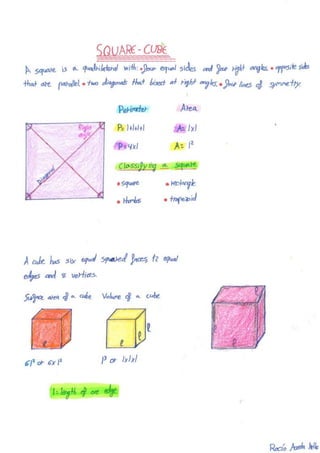 SQUARE - CUBE
A square is a quadrilateral with: • four equal sides and four right angles. • opposite sides
that are parallel. • two diagonals that bisect at right angles. • four lines of symmetry.
Perimeter Area
Right angle
Diagonal
P= l+l+l+l A= l×l
P= 4×l A= l²
Classifying a square
• square • rectangle
• rhombs • trapezoid
A cube has six equal squared faces, 12 equal
edges and 8 vertices.
Surface area of a cube Volume of a cube
l l l l
6l² or 6×l² l³ or l×l×l
l: length of one edge
Rocío